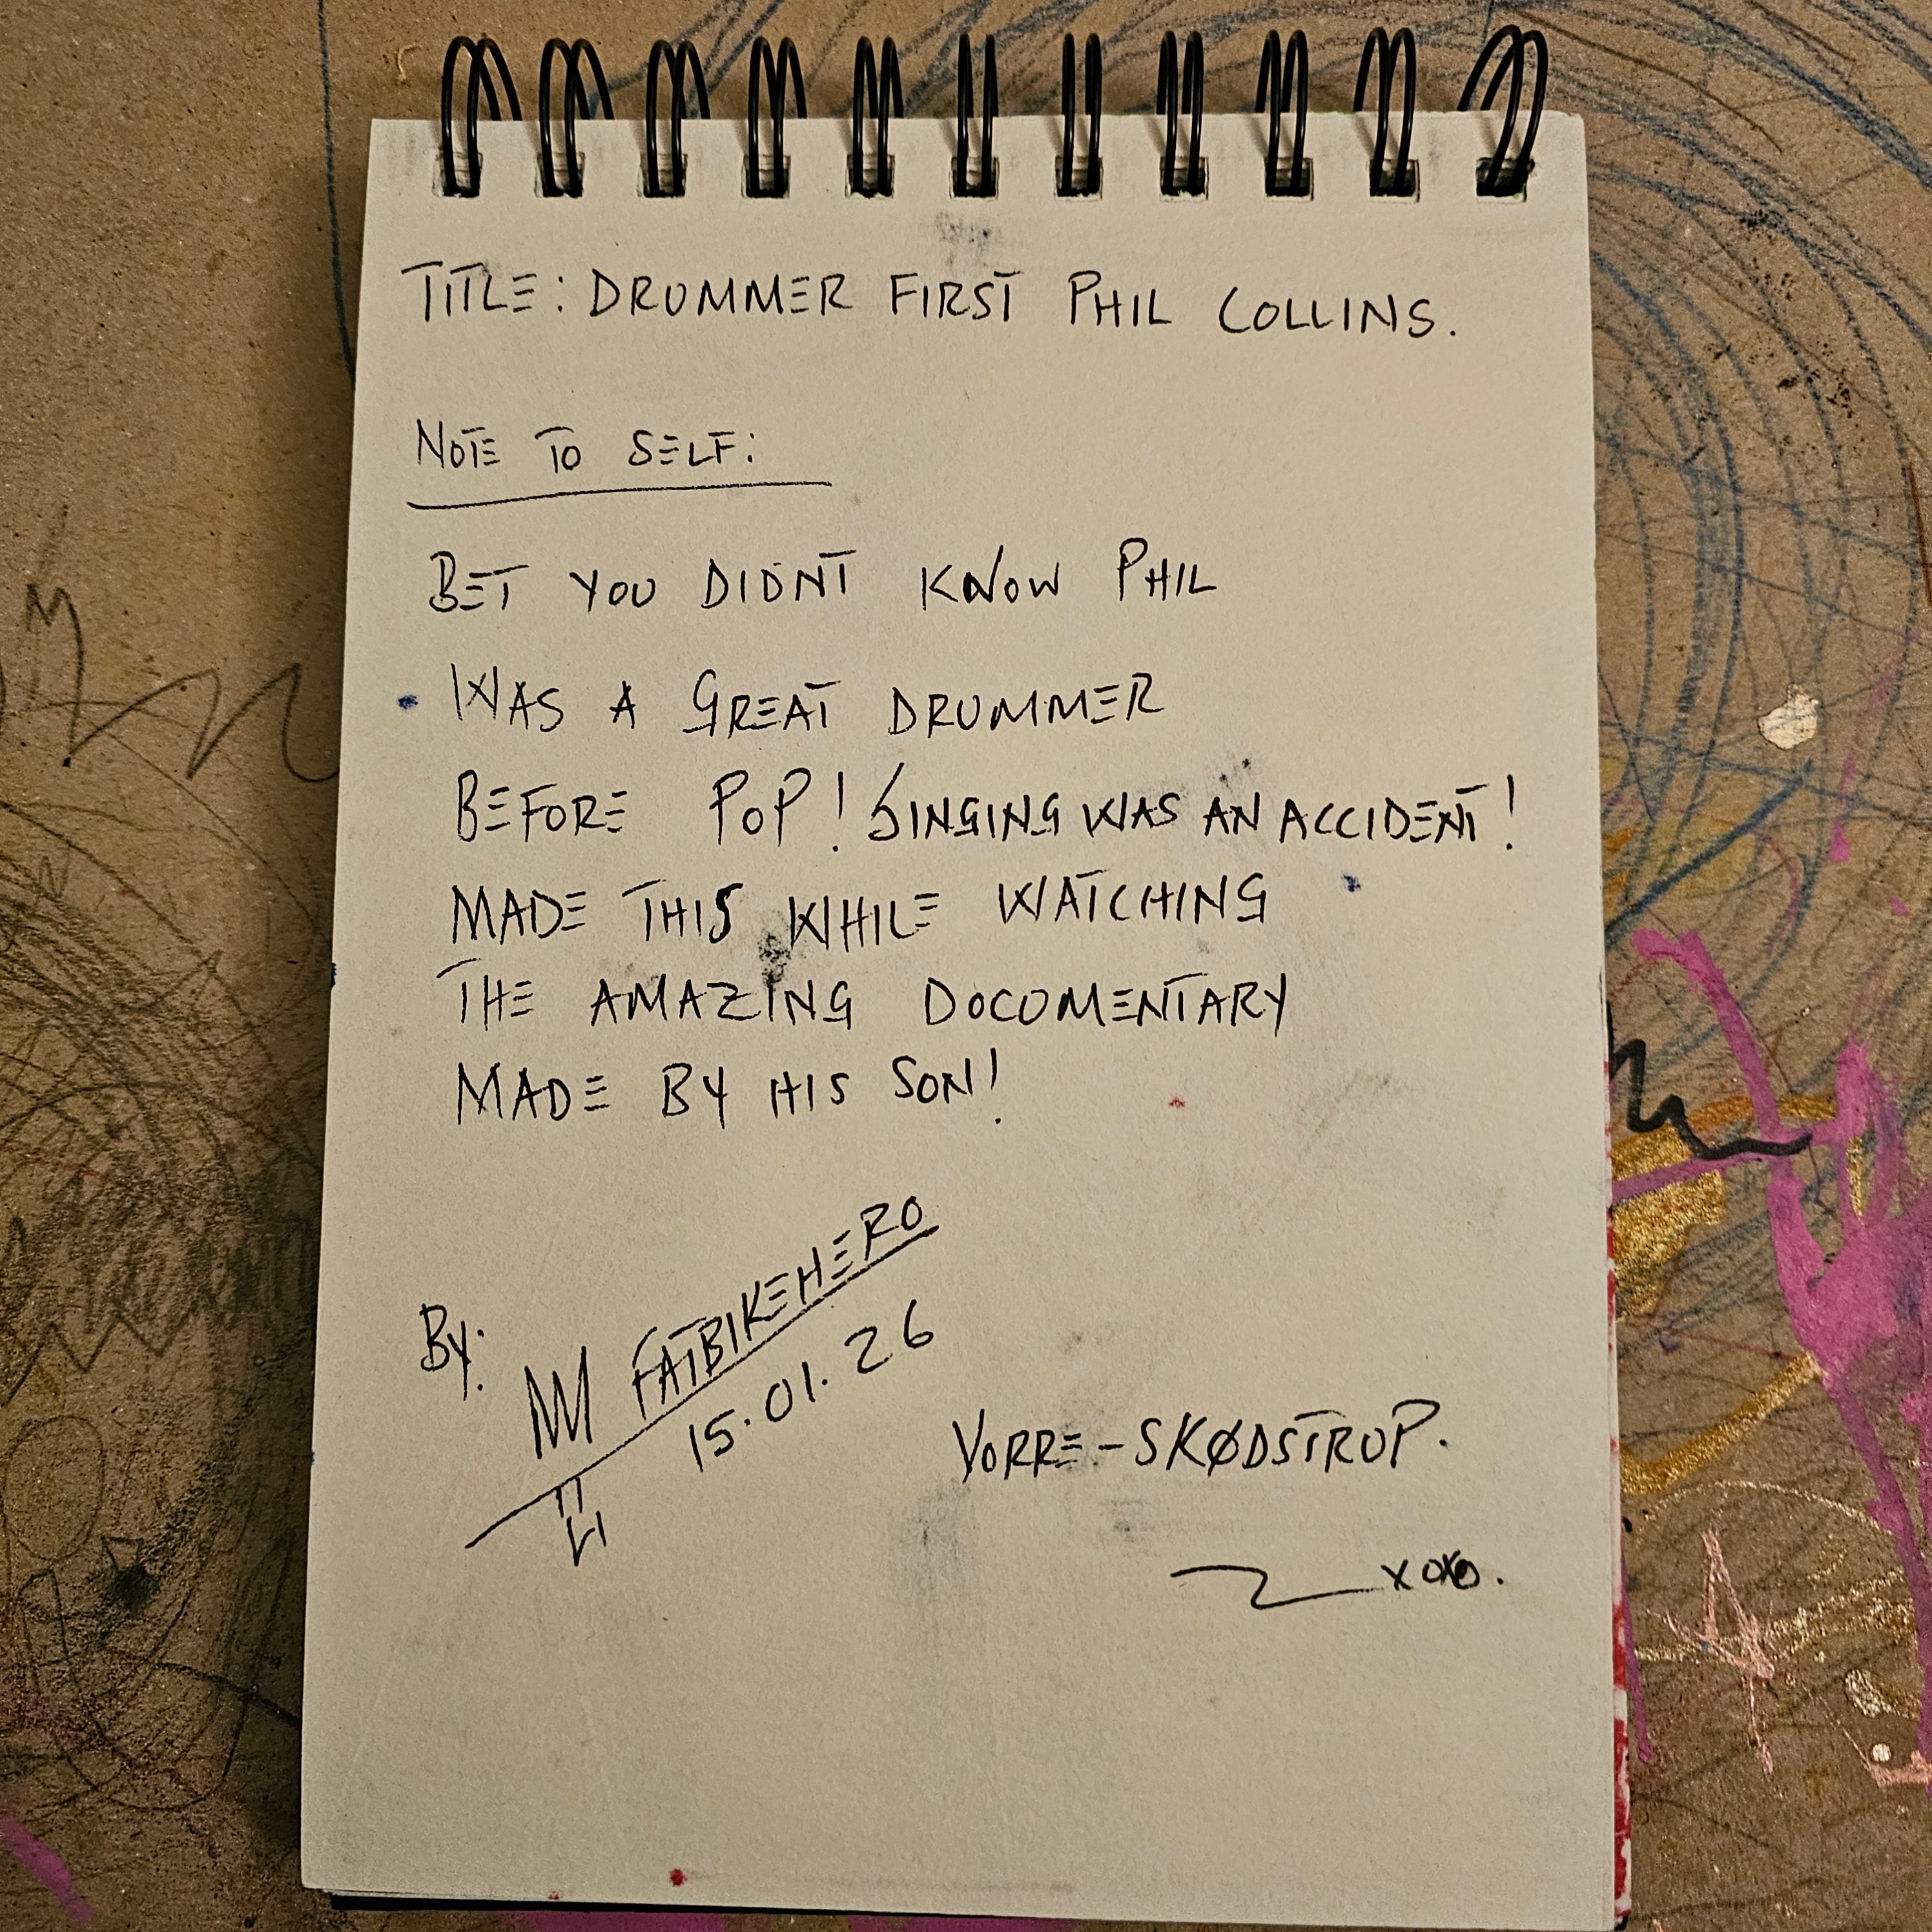 TITLE: DRUMMER FIRST PHIL COLLINS.
NOTE TO SELF:
BET YOU DIDNT KNOW PHIL
WAS A GREAT DRUMMER
BEFORE POP! SINGING WAS AN ACCIDENT!
MADE THIS WHILE WATCHING
THE AMAZING DOCUMENTARY
MADE BY HIS SON!
By: FATBIKEHERO
15.01.26
VORRE-SKØDSTRUP.
xoxo.